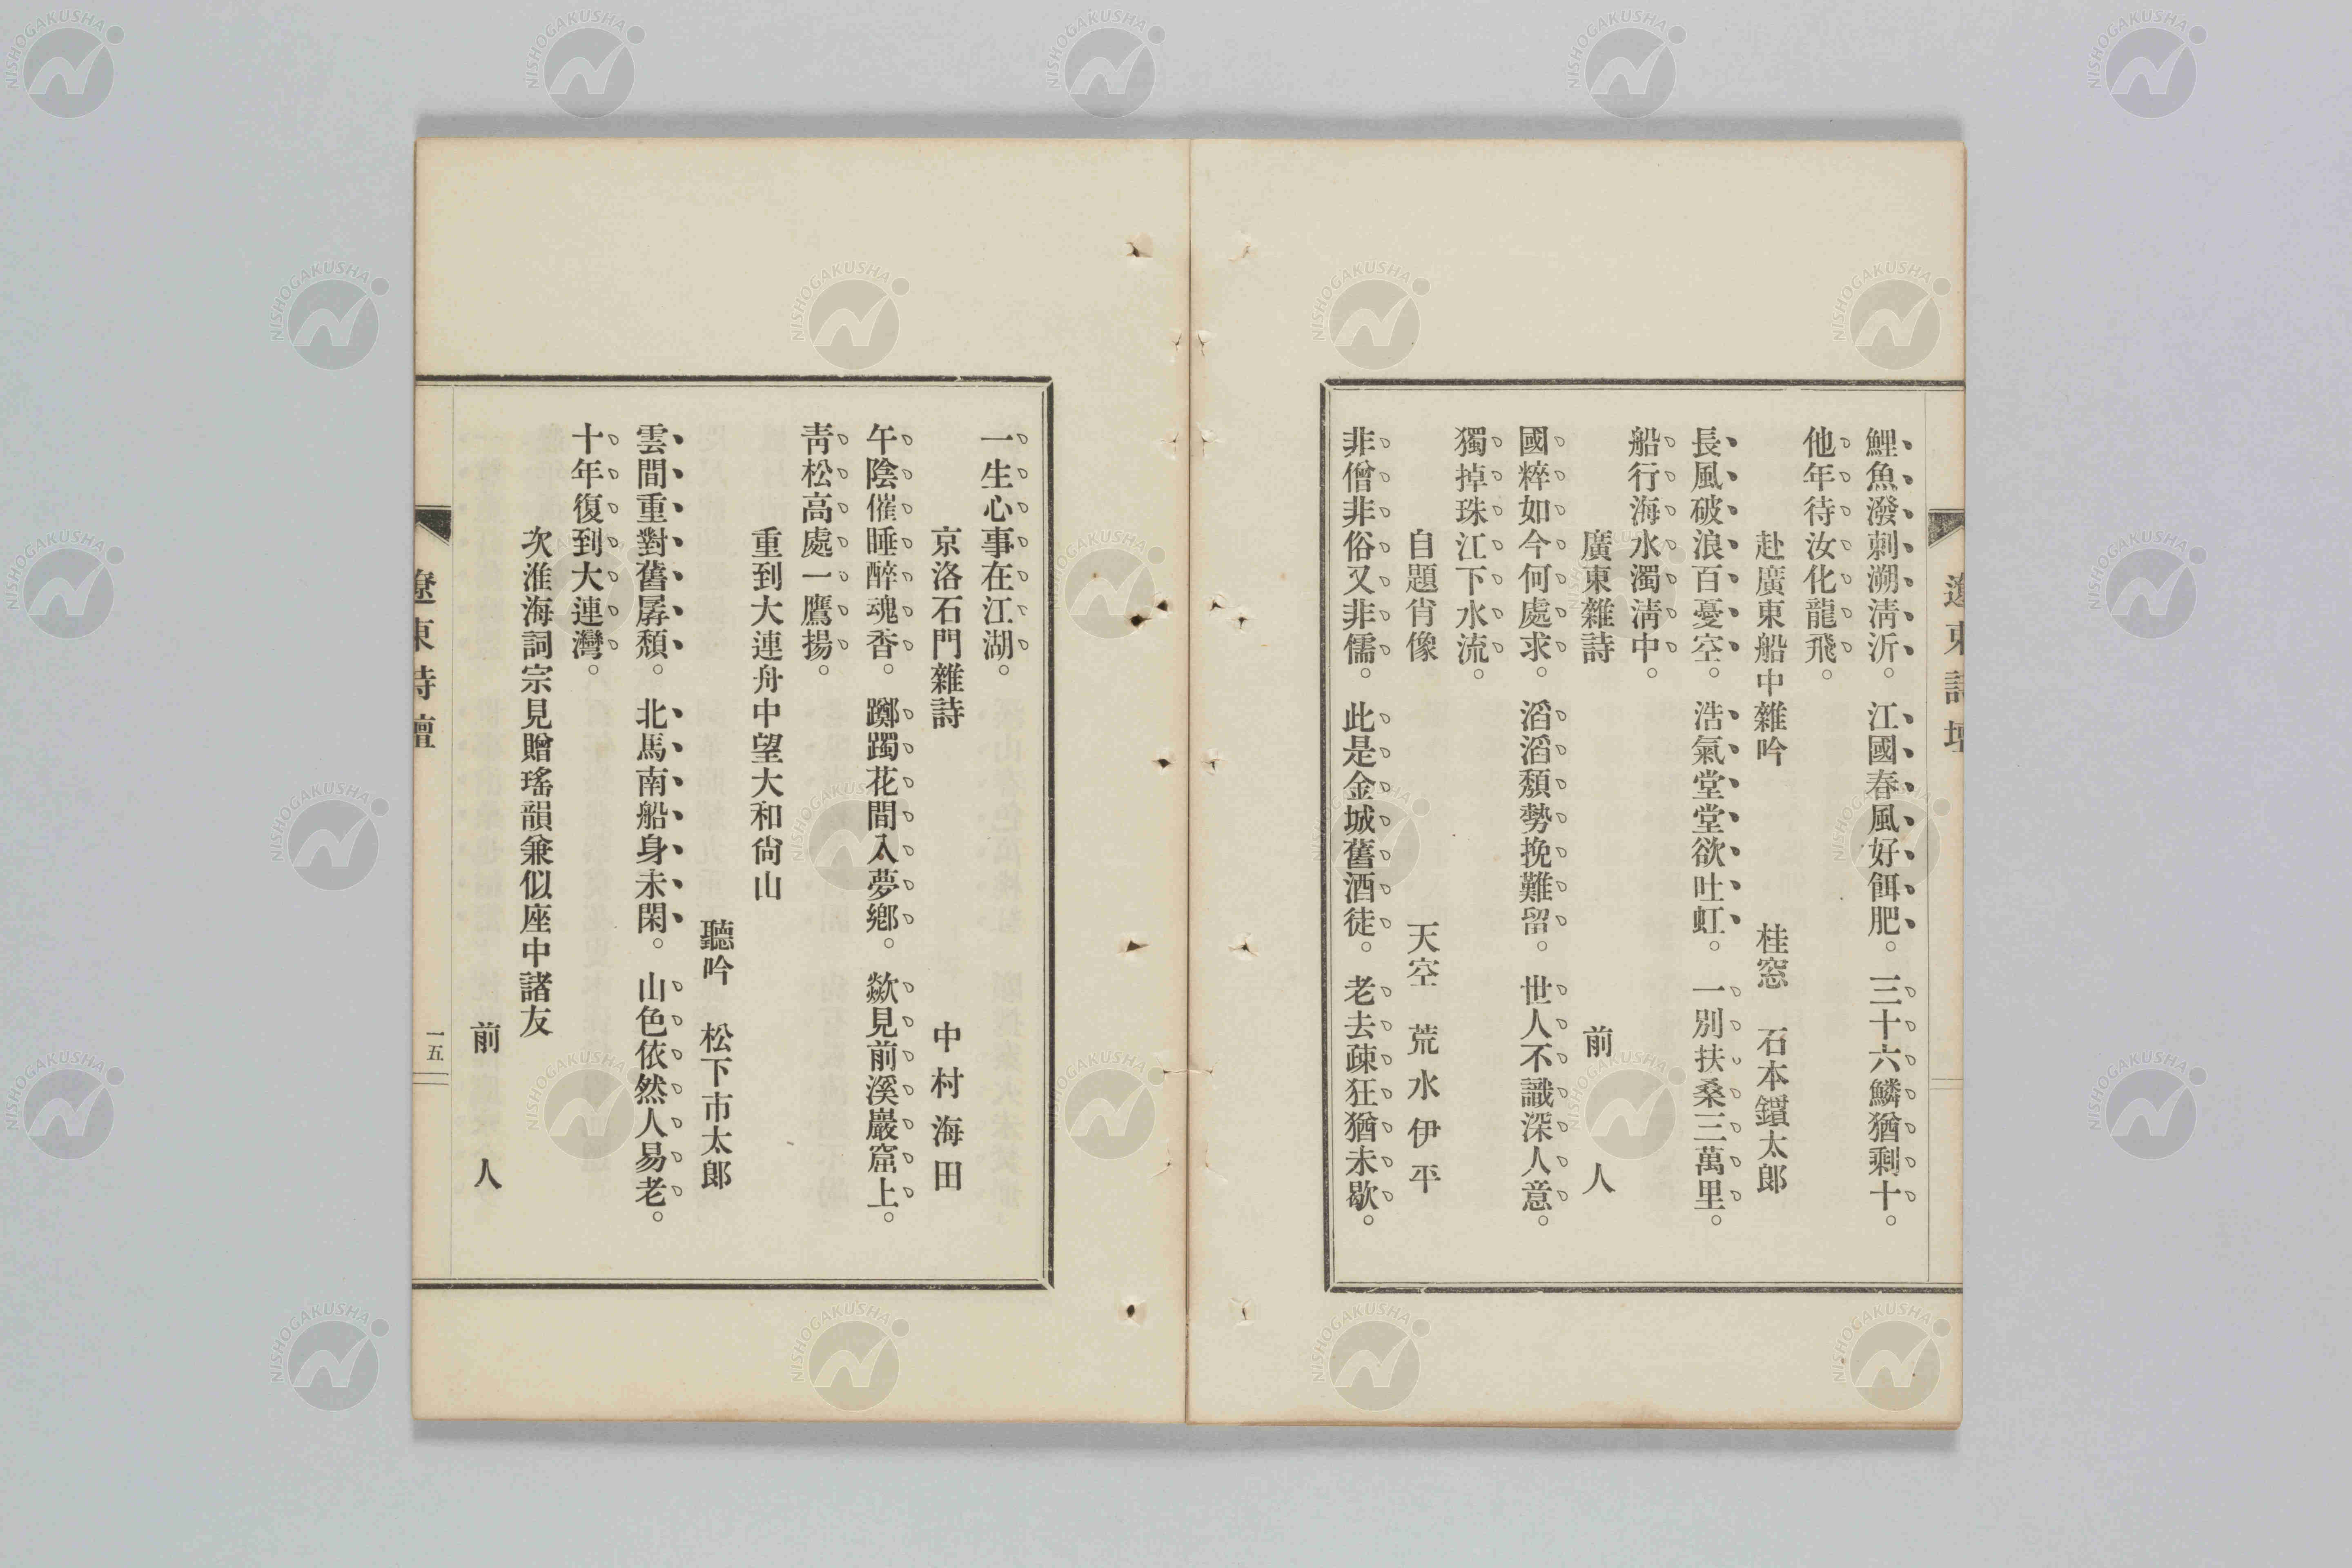 遼東詩壇
鯉魚潑剌溯淸沂。江國春風好餌肥。三十六鱗猶剩十。
他年待汝化龍飛。
赴廣東船中雜吟
桂窓 石本鏆太郞
長風破浪百憂空。浩氣堂堂欲吐虹。一別扶桑三萬里。
船行海水濁淸中。
廣東雜詩
前人
國粹如今何處求。滔滔頹勢挽難留。世人不識深人意。
獨掉珠江下水流。
自題肖像
天空 荒水伊平
非僧非俗又非儒。此是金城舊酒徒。老去疎狂猶未歇。
一生心事在江湖。
京洛石門雜詩
中村海田
午陰催睡醉魂香。躑躅花間入夢鄕。歘見前溪巖窟上。
靑松高處一鷹揚。
重到大連舟中望大和尙山
聽吟 松下市太郞
雲間重對舊孱顏。北馬南船身未閑。山色依然人易老。
十年復到大連灣。
次淮海詞宗見贈瑤韻兼似座中諸友
前人
遼東詩壇
一五
NISHOGAKUSHA